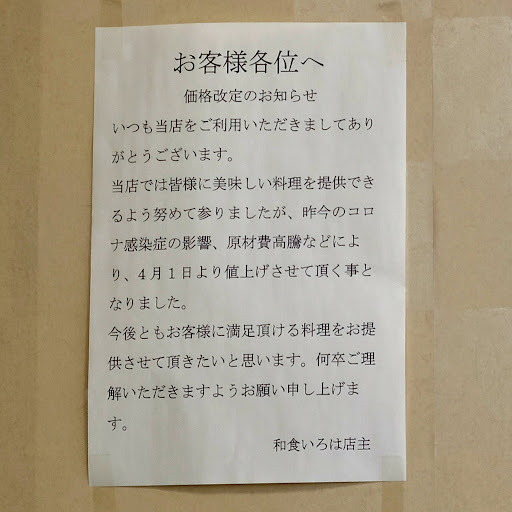 お客様各位へ
価格改定のお知らせ
いつも当店をご利用いただきましてあり
がとうございます。
当店では皆様に美味しい料理を提供でき
るよう努めて参りましたが、昨今のコロ
ナ感染症の影響、原材費高騰などによ
り、4月1日より値上げさせて頂く事と
なりました。
今後ともお客様に満足頂ける料理をお提
供させて頂きたいと思います。何卒ご理
解いただきますようお願い申し上げま
す。
和食いろは店主